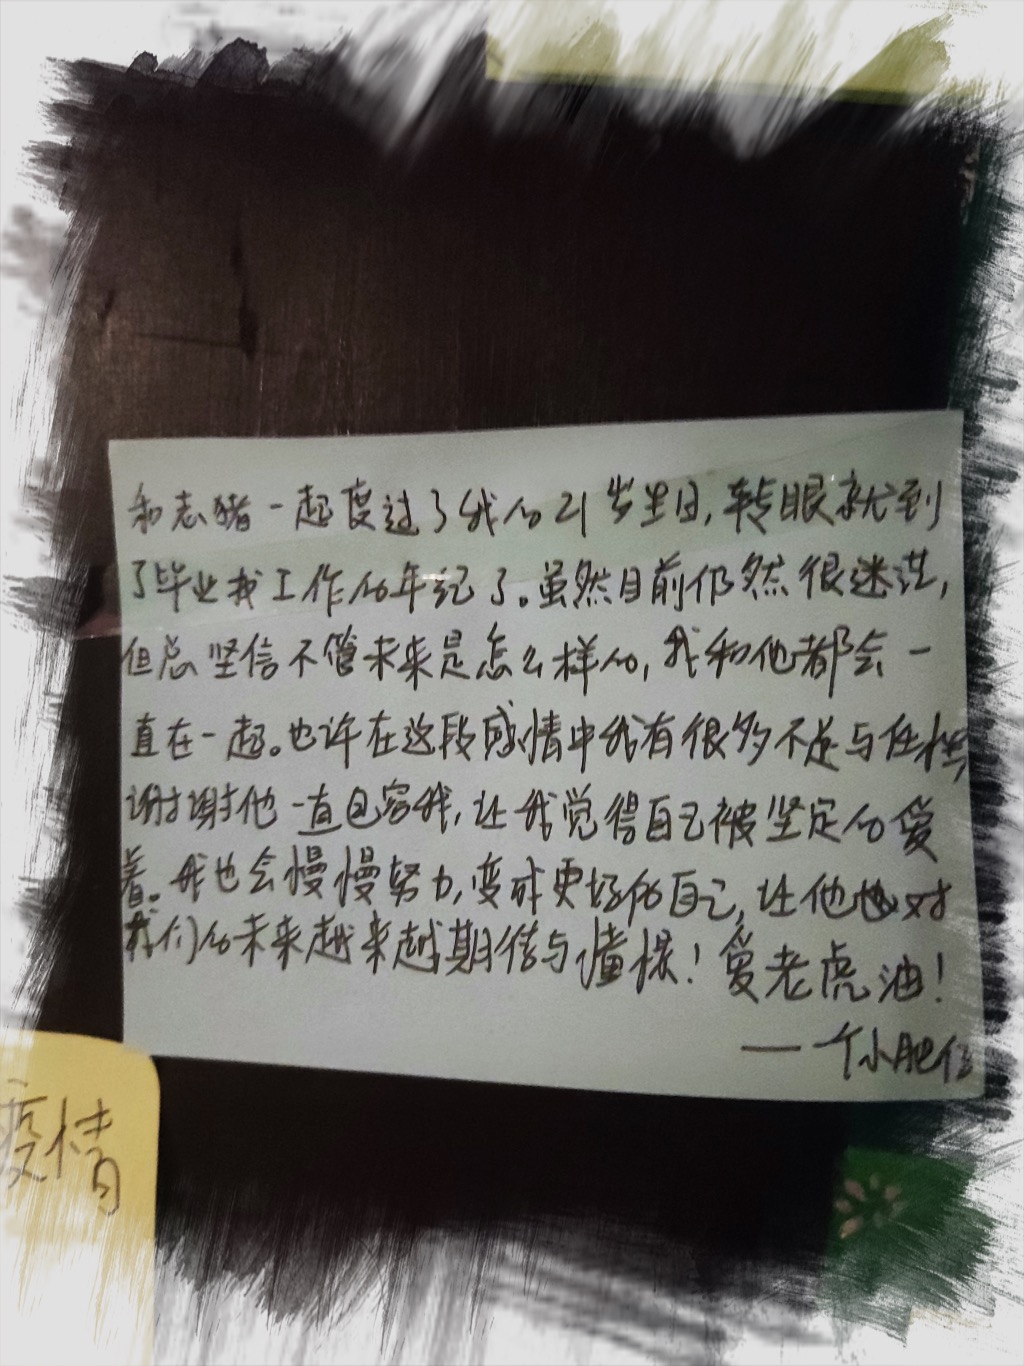 和志猪一起度过了我的21岁生日,转眼就到
了毕业找工作的年纪了。虽然目前仍然很迷茫,
但总坚信不管未来是怎么样的,我和他都会一
直在一起。也许在这段感情中我有很多不足与任性
谢谢他一直包容我,让我觉得自己被坚定的爱
着。我也会慢慢努力,变成更好的自己,让他也对
我们的未来越来越期待与憧憬!爱老虎油!
——个小肥
疫情